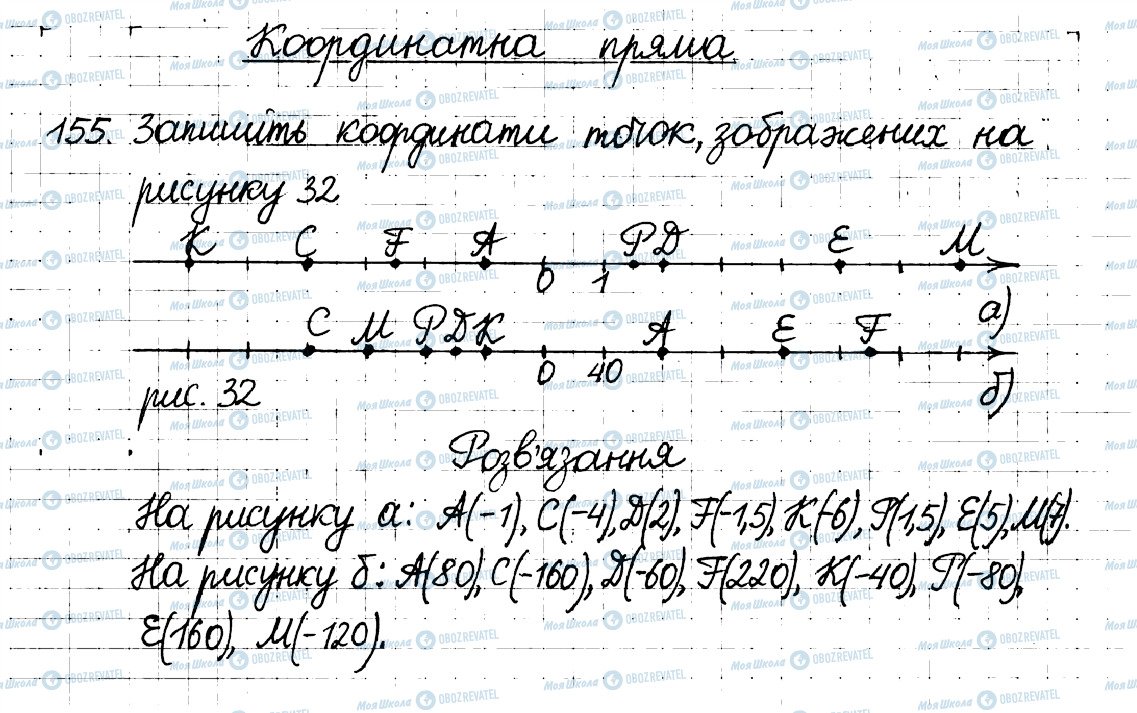 Координатна пряма
155. Запишіть координати точок, зображених на
рисунку 32
K C F A P D E M
0 1
а)
C M P D K A E F
0 40
рис. 32
б)
Розв'язання
На рисунку а: A(-1), C(-4), D(2), F(-1,5), K(-6), P(1,5), E(5), M(7).
На рисунку б: A(80), C(-160), D(-60), F(220), K(-40), P(-80),
E(160), M(-120).